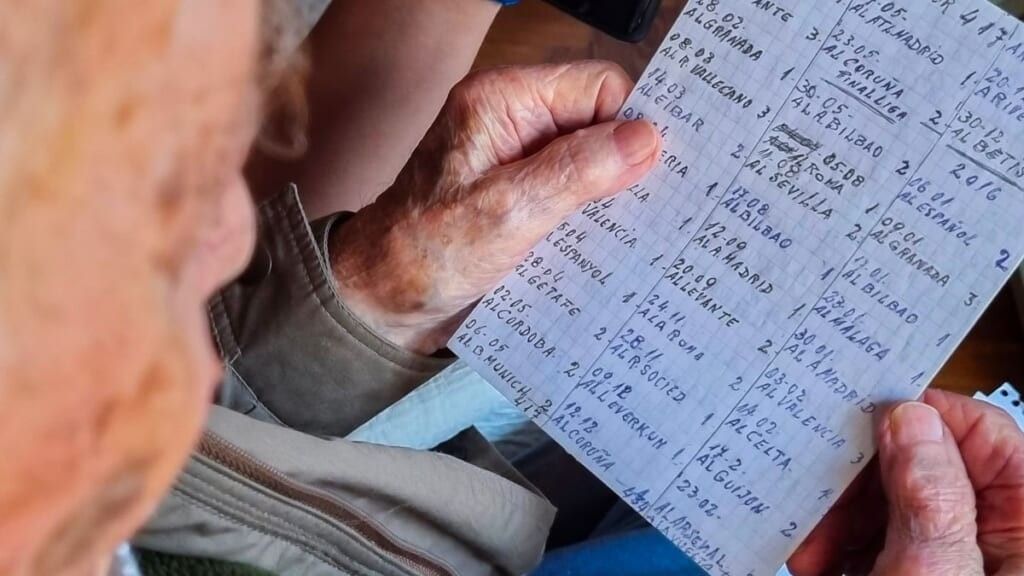 ANTE 3
AL GRANADA 1
08.03
AL R.VALLECANO 3
AL EIBAR 2
ERIA 1
VALENCIA 1
AL ESPANYOL 1
28.04
AL GETAFE 2
02.05
AL CORDOBA 2
06.05
AL B.MUNICH 2
05.
AL ATLMADRID 1
23.05
AL CORUÑA
FINALLIGA 2
30.05
AL A.BILBAO 2
05.08
ROMA 1
AL SEVILLA 2
AL BILBAO 1
12.09
AL AMADRID 1
20.09
AL LEVANTE 2
24.11
A LA ROMA 2
28.11
AL R SOCIED 1
09.12
AL LEVERKUN 1
12.12
AL CORUÑA
OR 417 A
20.1
A RIVE
30.12
AL BETIS
2016
06.01
AL ESPAÑOL 2
09.01
AL GRANADA 3
17.01
AL BILBAO 1
23.01
AL MALAGA 1
30.01
AL AMADRID
03.02
AL VALENCIA 3
14.02.
AL CELTA 1
17.2.
AL GUIJON 2
23.02.
AL ARSENAL